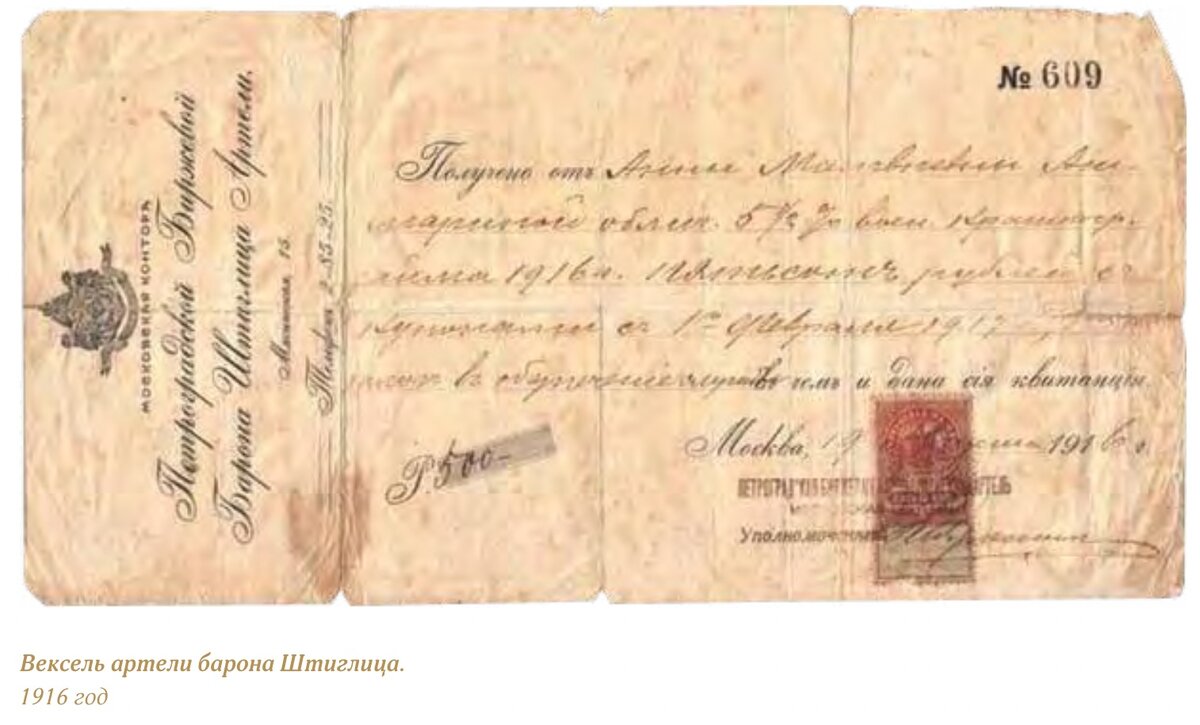 МОСКОВСКАЯ КОНТОРА
Петроградской Биржевой
Барона Штиглица Артели.
Мясницкая, 15.
Телефонъ 2-85-25.
№ 609
Получено отъ Анны Матвѣевны
облиг. 5½% воен. краткоср.
займа 1916 г. пятьсотъ рублей съ
купонами съ 1го февраля 1917 г.
въ чемъ и дана сія квитанція.
Р. 500-
Москва, 19 1916 г.
ПЕТРОГРАДСКАЯ БИРЖЕВАЯ АРТЕЛЬ
Уполномоченный
Вексель артели барона Штиглица.
1916 год